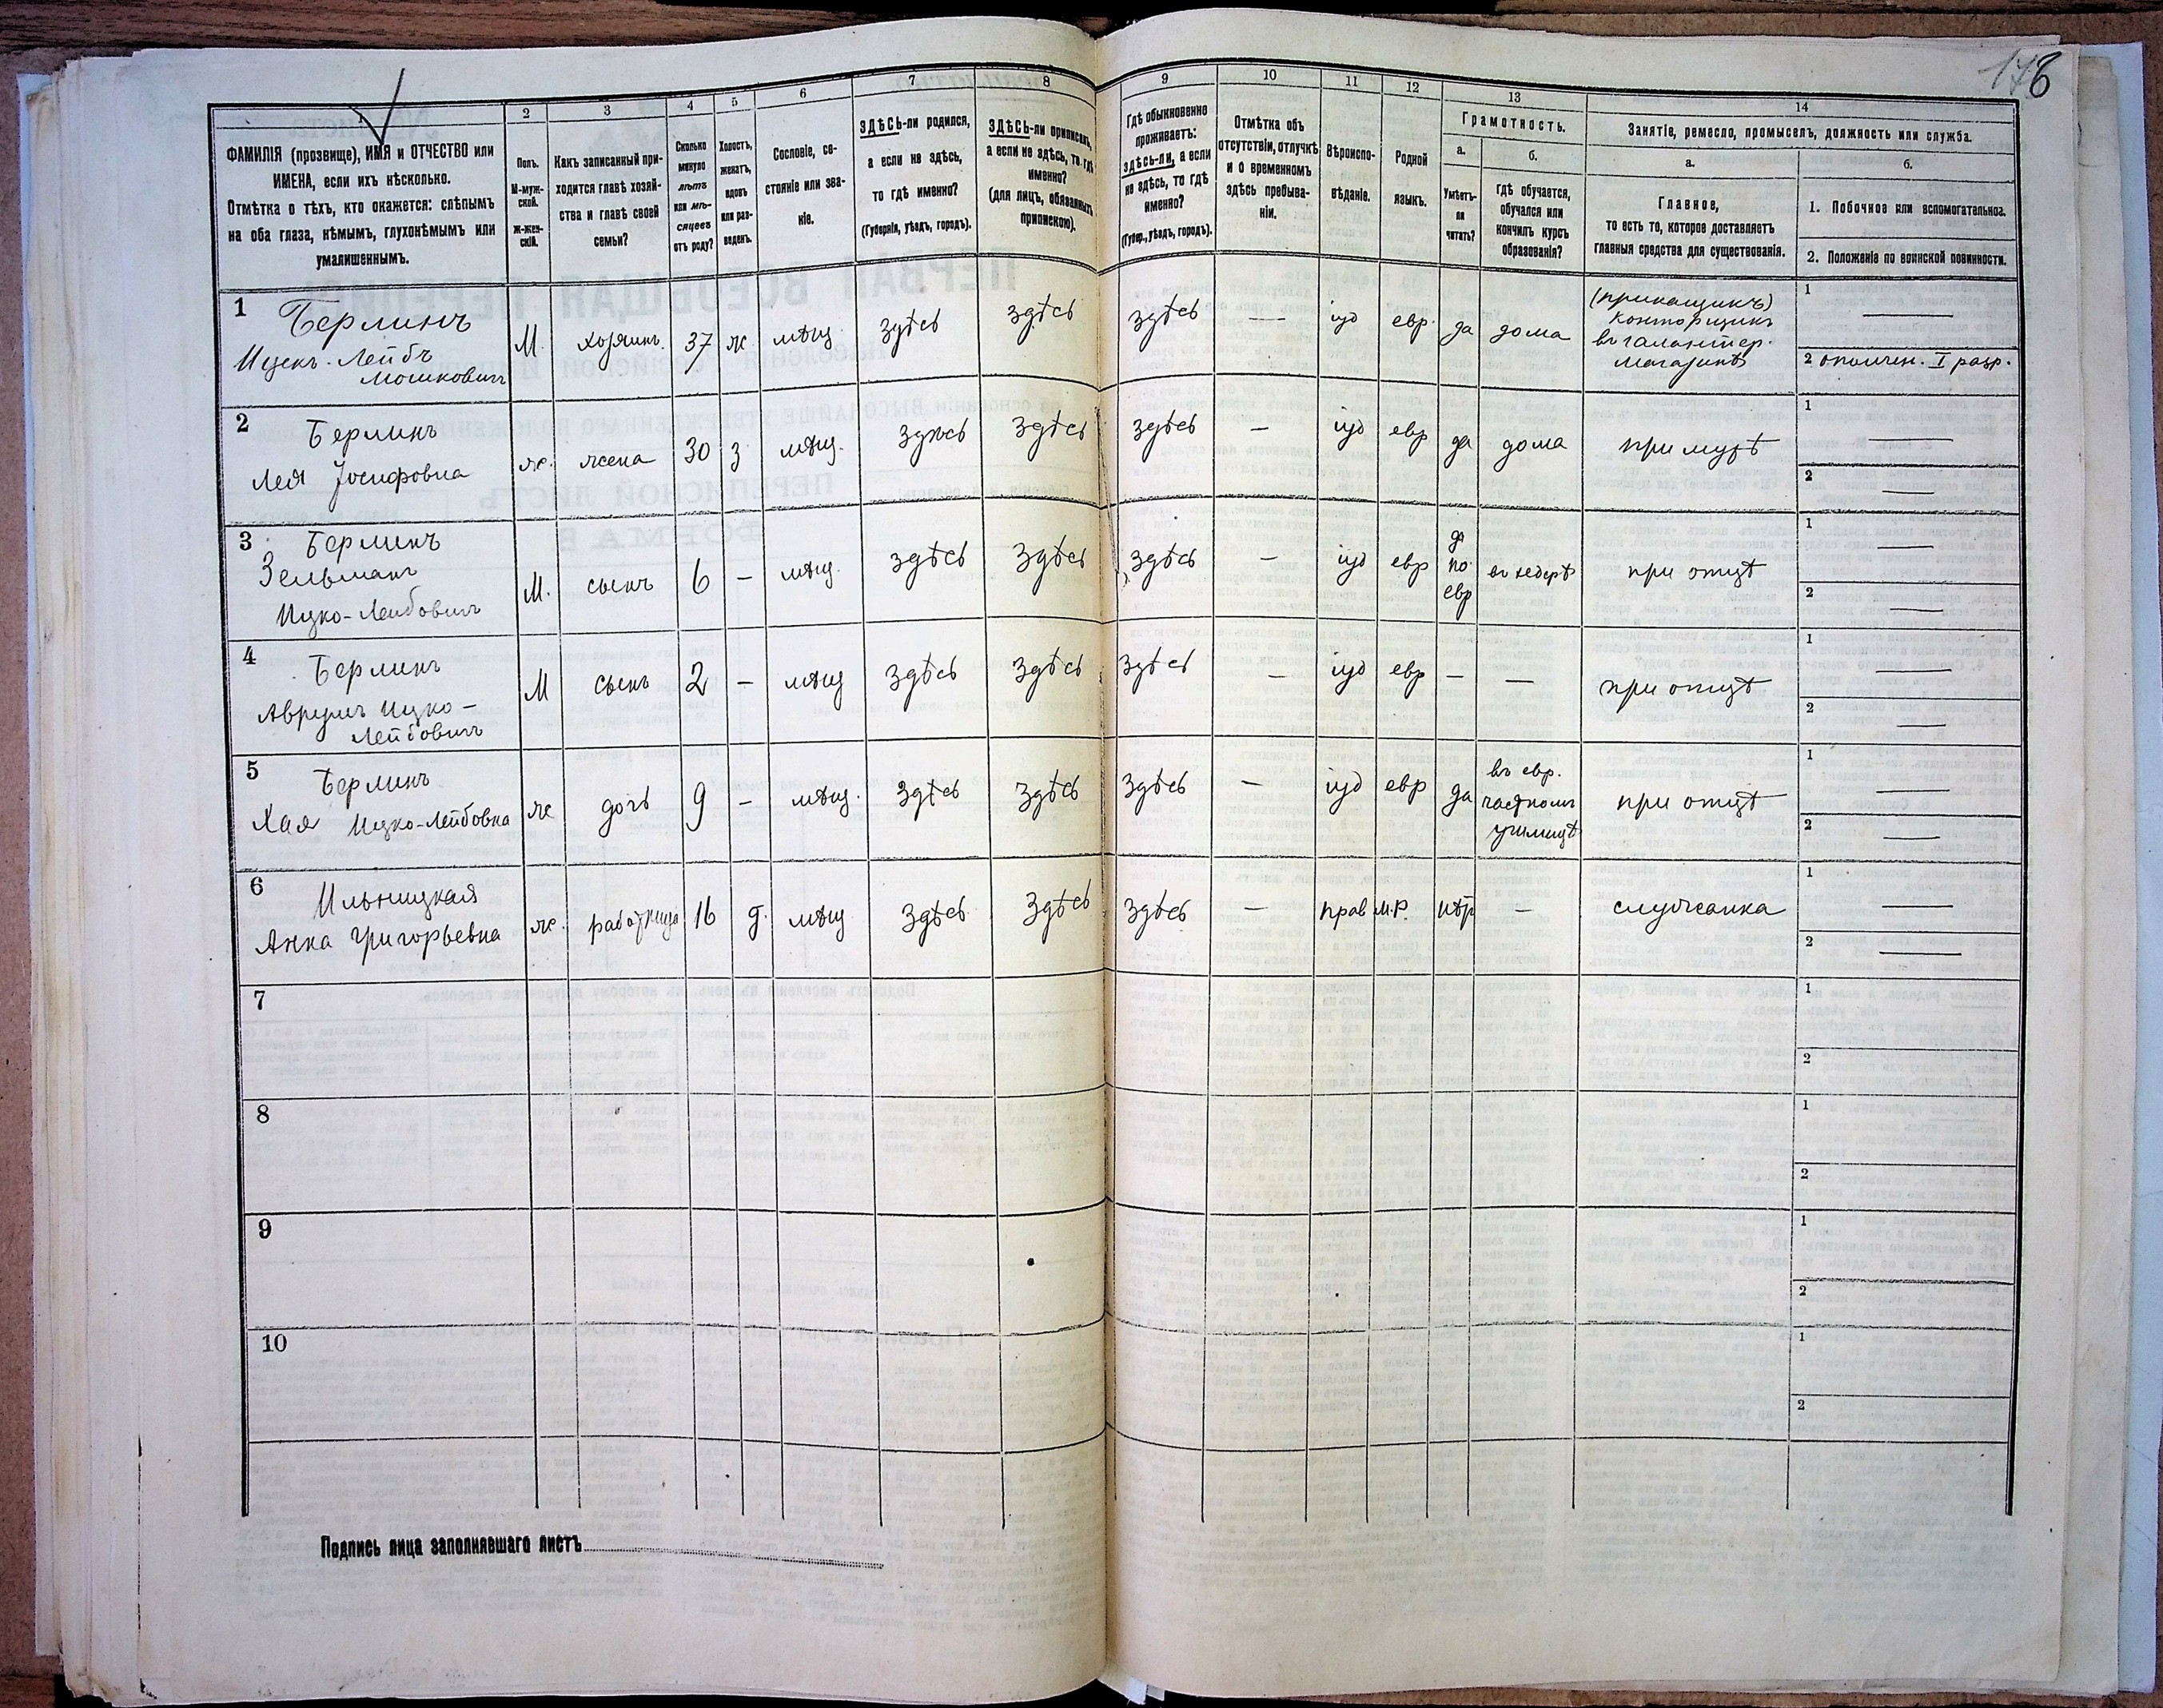 178
1
ФАМИЛІЯ (прозвище), ИМЯ и ОТЧЕСТВО или
ИМЕНА, если ихъ нѣсколько.
Отмѣтка о тѣхъ, кто окажется: слѣпымъ
на оба глаза, нѣмымъ, глухонѣмымъ или
умалишеннымъ.
2
Полъ.
М-муж-
ской.
ж-жен-
скій.
3
Какъ записанный при-
ходится главѣ хозяй-
ства и главѣ своей
семьи?
4
Сколько
минуло
лѣтъ
или мѣ-
сяцевъ
отъ роду?
5
Холостъ,
женатъ,
вдовъ
или раз-
веденъ.
6
Сословіе, со-
стояніе или зва-
ніе.
7
ЗДѢСЬ-ли родился,
а если не здѣсь,
то гдѣ именно?
(Губернія, уѣздъ, городъ).
8
ЗДѢСЬ-ли приписанъ,
а если не здѣсь, то гдѣ
именно?
(для лицъ, обязанныхъ
припискою).
9
Гдѣ обыкновенно
проживаетъ:
здѣсь-ли, а если
не здѣсь, то гдѣ
именно?
(Губер., уѣздъ, городъ).
10
Отмѣтка объ
отсутствіи, отлучкѣ
и о временномъ
здѣсь пребыва-
ніи.
11
Вѣроиспо-
вѣданіе.
12
Родной
языкъ.
13
Грамотность.
а.
Умѣетъ-
ли
читать?
б.
гдѣ обучается,
обучался или
кончилъ курсъ
образованія?
14
Занятіе, ремесло, промыселъ, должность или служба.
а.
Главное,
то есть то, которое доставляетъ
главныя средства для существованія.
б.
1. Побочное или вспомогательное.
2. Положеніе по воинской повинности.
1
Берлинъ
Ицекъ-Лейбъ
Мошковичъ
М.
хозяинъ
37
ж.
мѣщ
здѣсь
здѣсь
здѣсь
—
іуд
евр.
да
дома
(прикащикъ)
конторщикъ
въ галантер.
магазинѣ
1 —
2 ополчен. I разр.
2
Берлинъ
Лея Іосифовна
ж.
жена
30
з
мѣщ.
здѣсь
здѣсь
здѣсь
—
іуд
евр
да
дома
при мужѣ
1 —
2 —
3
Берлинъ
Зельманъ
Ицко-Лейбовичъ
М.
сынъ
6
—
мѣщ.
здѣсь
здѣсь
здѣсь
—
іуд
евр
да
по
евр
въ хедерѣ
при отцѣ
1 —
2 —
4
Берлинъ
Аврумъ Ицко-
Лейбовичъ
М
сынъ
2
—
мѣщ
здѣсь
здѣсь
здѣсь
—
іуд
евр
—
—
при отцѣ
1 —
2 —
5
Берлинъ
Хая Ицко-Лейбовна
ж
дочь
9
—
мѣщ.
здѣсь
здѣсь
здѣсь
—
іуд
евр
да
въ евр.
частномъ
училищѣ
при отцѣ
1 —
2 —
6
Ильницкая
Анна Григорьевна
ж.
работница
16
д.
мѣщ
здѣсь
здѣсь
здѣсь
—
прав
м.р.
нѣт
—
служанка
1 —
2 —
7
1
2
8
1
2
9
1
2
10
1
2
Подпись лица заполнявшаго листъ